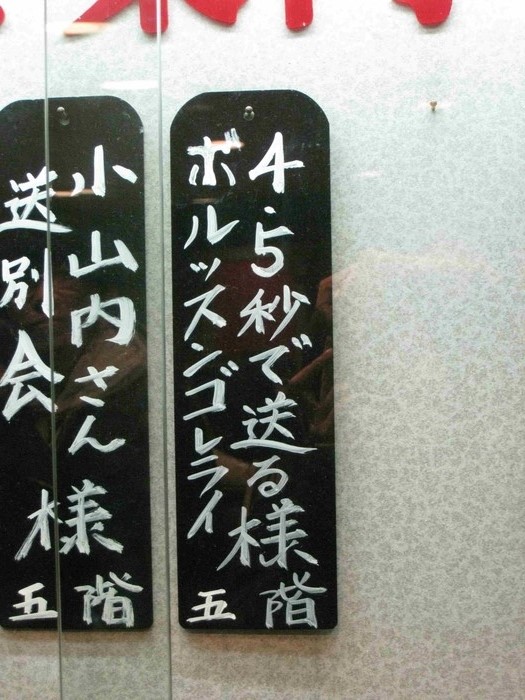 4.5秒で送る様
ボルッスンゴレライ
五階
小山内さん様
送別会様
五階